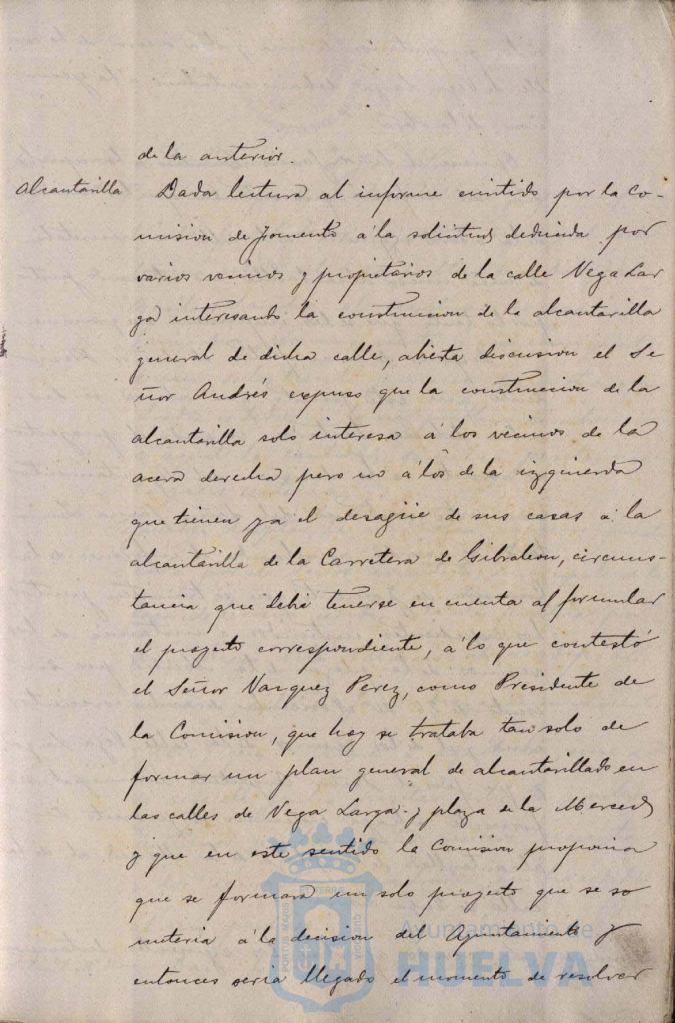 de la anterior.
Alcantarilla
Dada lectura al informe emitido por la Co-
mision de Fomento á la solicitud deducida por
varios vecinos y propietarios de la calle Vega Lar
ga interesando la construccion de la alcantarilla
general de dicha calle, abierta discusion el Se
ñor Andrés expuso que la construccion de la
alcantarilla solo interesa á los vecinos de la
acera derecha pero no á los de la izquierda
que tienen ya el desagüe de sus casas á la
alcantarilla de la Carretera de Gibraleon, circuns-
tancia que debe tenerse en cuenta al formular
el proyecto correspondiente, á lo que contestó
el Señor Vazquez Perez, como Presidente de
la Comision, que hoy se trataba tan solo de
formar un plan general de alcantarillado en
las calles de Vega Larga y plaza de la Merced
y que en este sentido la Comision proponia
que se formara un solo proyecto que se so
meteria á la decision del Ayuntamiento y
entonces seria llegado el momento de resolver
Ayuntamiento de
HUELVA